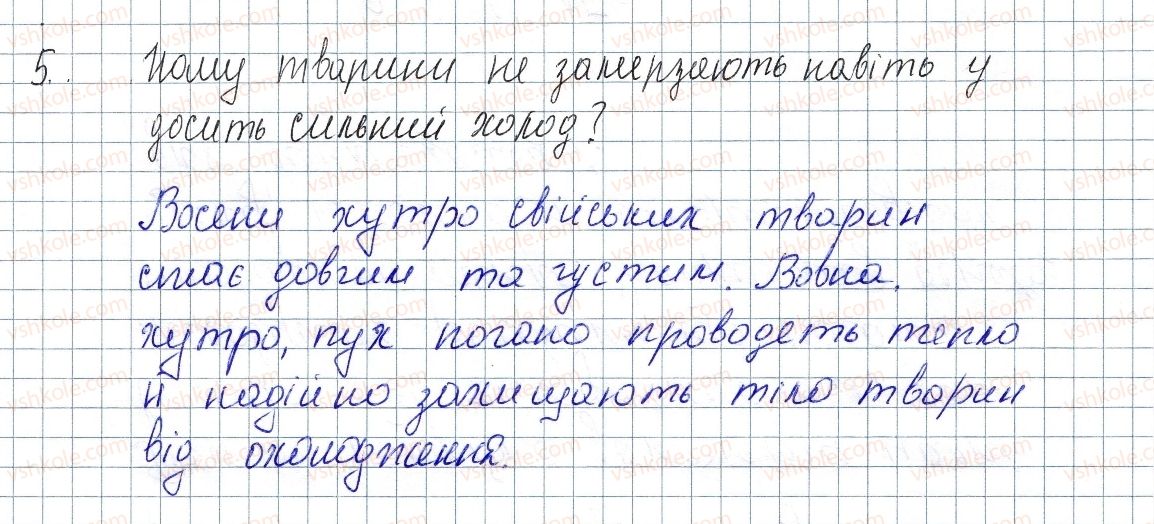 5. Чому тварини не замерзають навіть у
досить сильний холод?
Восени хутро свійських тварин
стає довгим та густим. Вовна,
хутро, пух погано проводеть тепло
й надійно захищають тіло тварин
від охолодження.